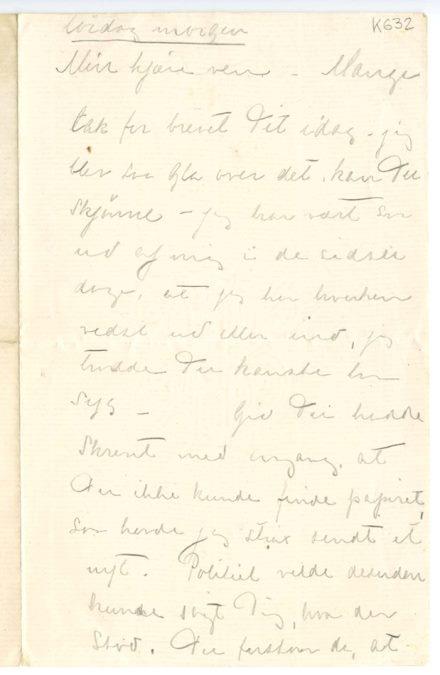 K632
lördag morgen
Min kjære ven – Mange
tak for brevet Dit idag – jeg
blev saa gla over det, kan Du
skjønne – jeg har vært saa
ud af mig i de sidste
dage, at jeg har hverken
vedst ud eller ind, jeg
trodde Du kanske var
syg – Gid Du hadde
skrevet med engang, at
Du ikke kunde finde papiret,
saa havde jeg strax sendt et
nyt. Politiet vilde desuden
kunde sagt Dig, hva der
stod. Du forstaar da, at